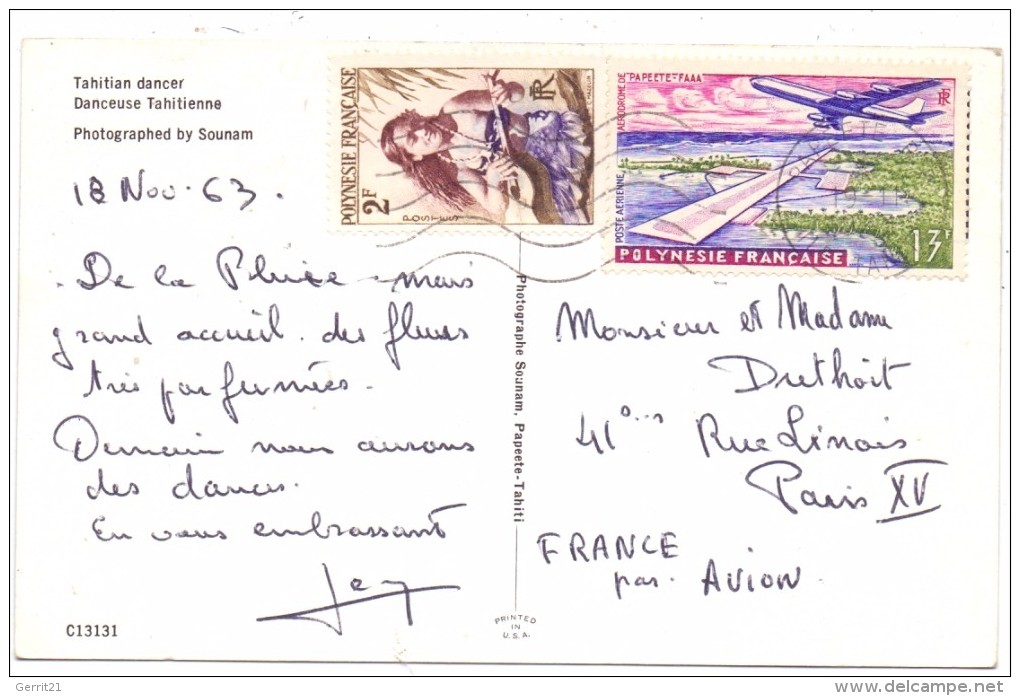 Tahitian dancer
Danseuse Tahitienne
Photographed by Sounam
18 Nov. 63.
De la Pluie - mais
grand accueil. des fleurs
très parfumées.
Demain nous aurons
des danses.
En vous embrassant
C13131
Photographe Sounam, Papeete-Tahiti
PRINTED
IN
U.S.A.
POLYNESIE FRANÇAISE
2F
POSTES
RF
AÉRODROME DE PAPEETE-FAAA
POSTE AÉRIENNE
RF
13F
POLYNESIE FRANÇAISE
Monsieur et Madame
41
Rue Linois
Paris XV
FRANCE
par. AVION.
Gerrit21
www.delcampe.net